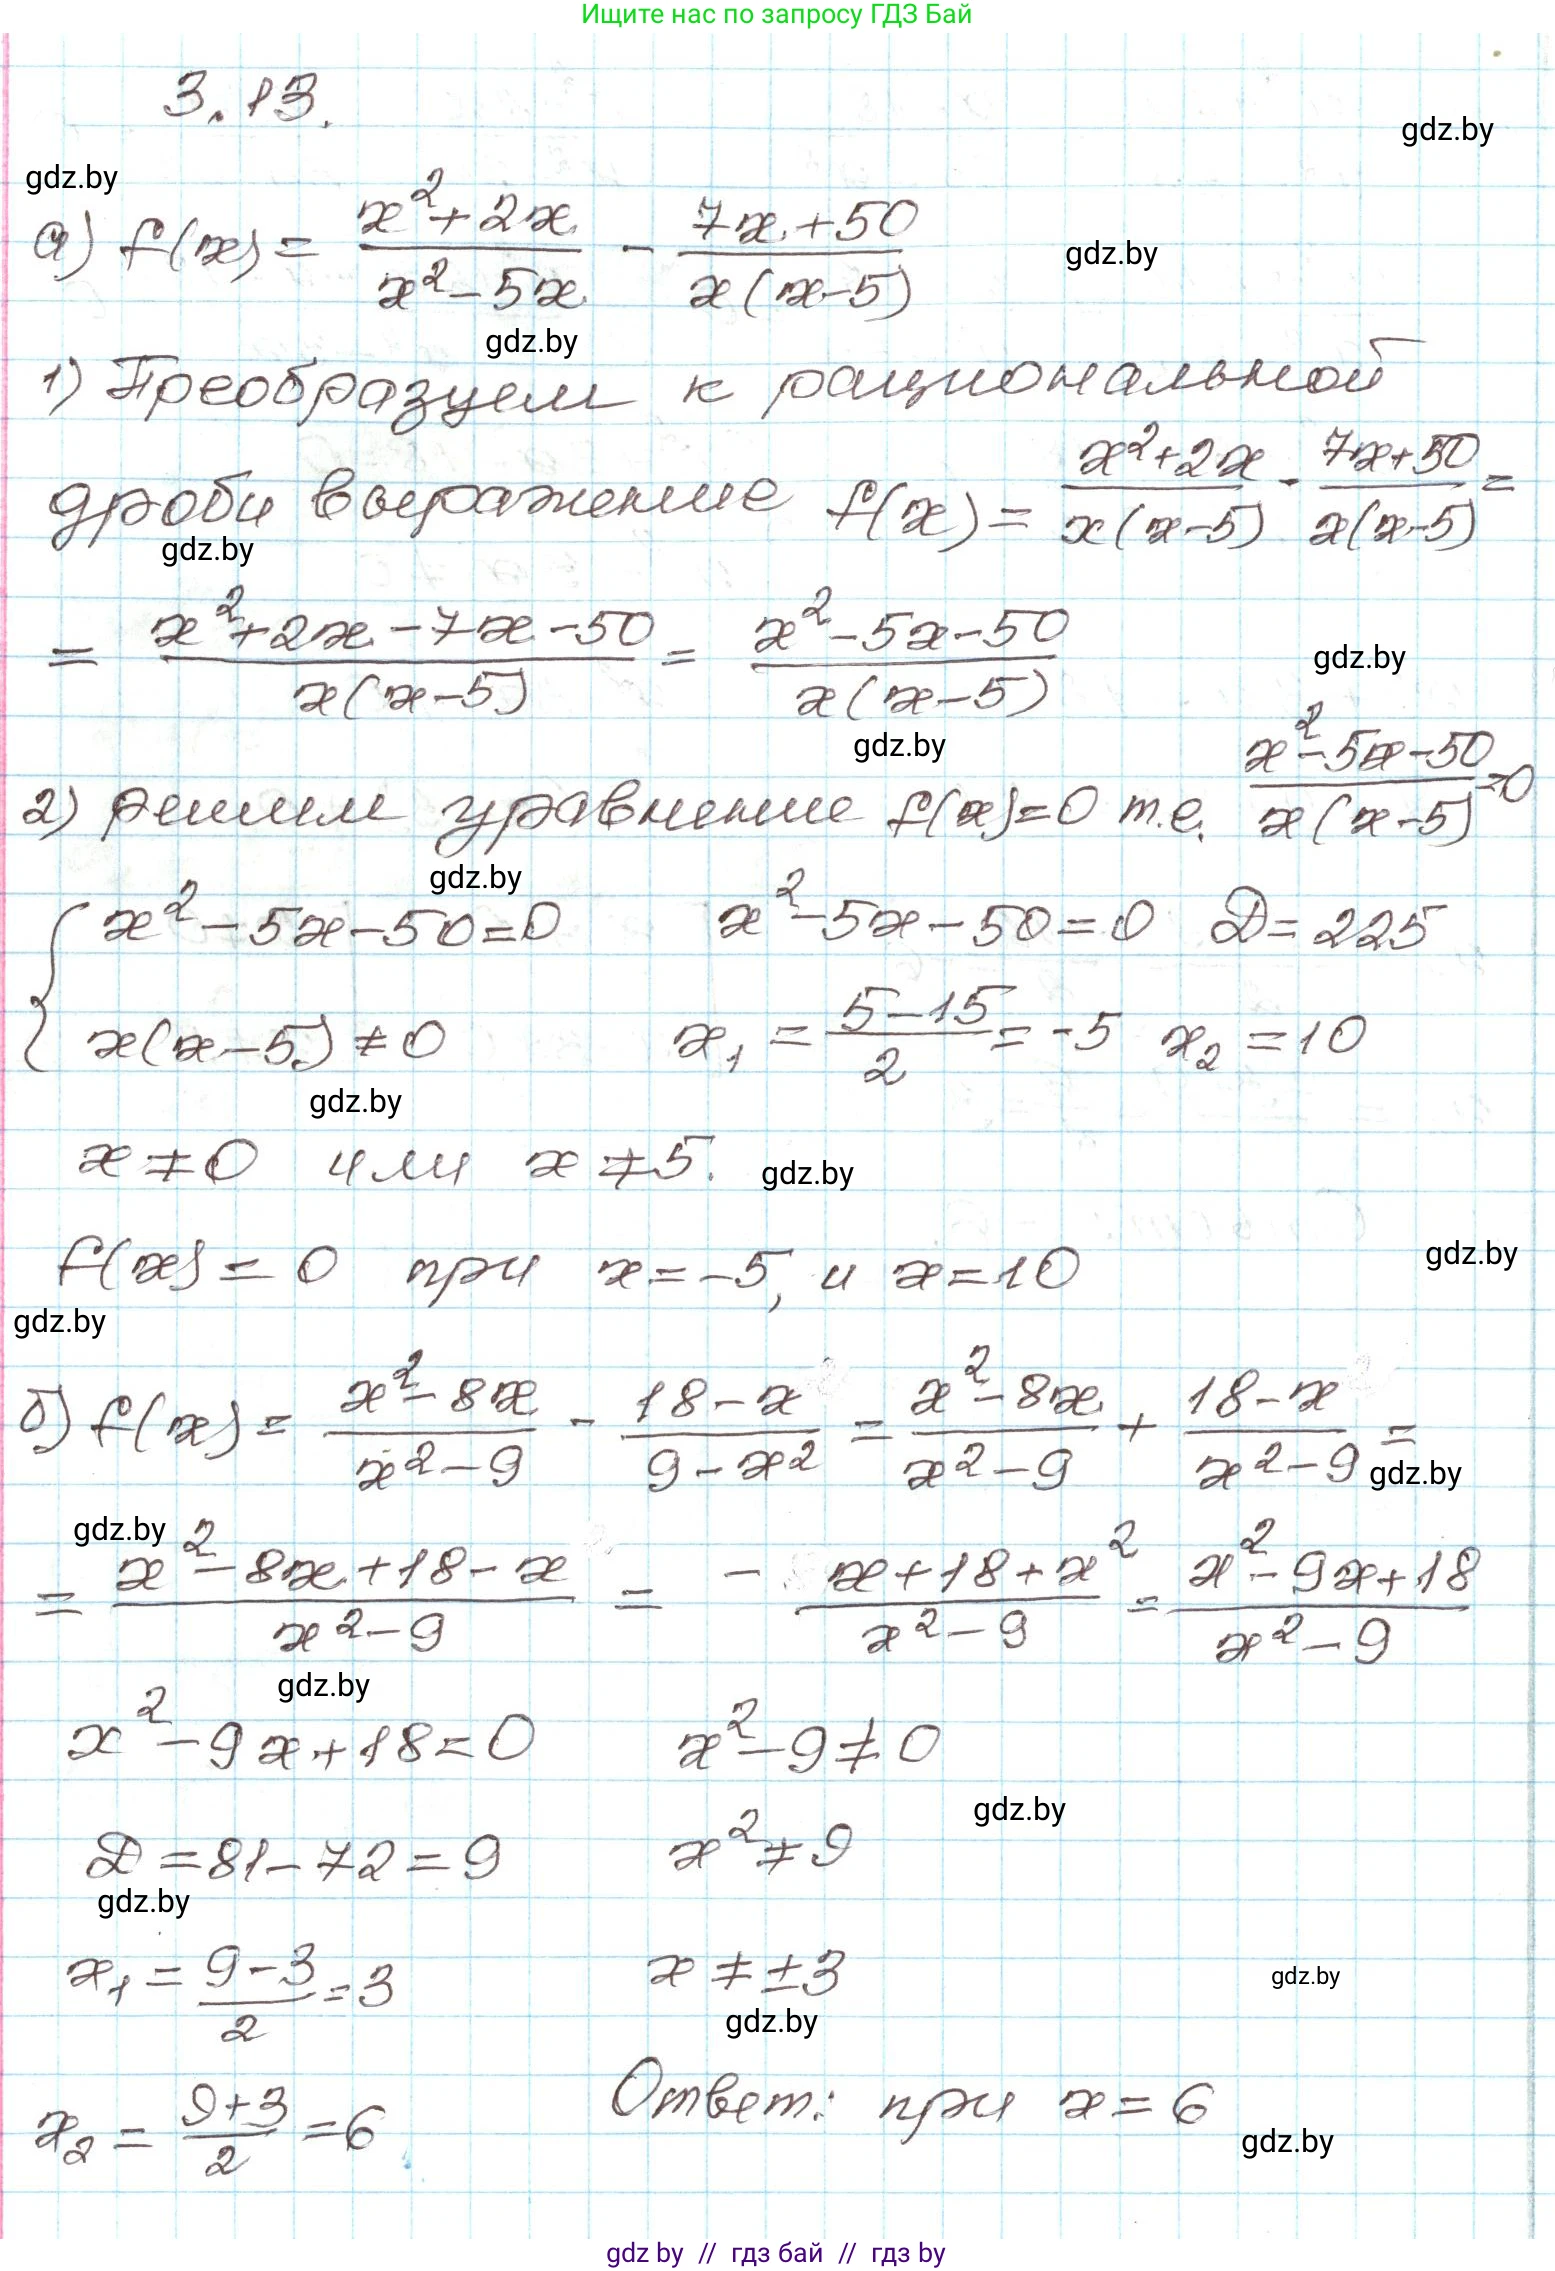 Ищите нас по запросу ГДЗ Бай
3.13.
gdz.by
gdz.by
а) f(x) = (x² + 2x)/(x² - 5x) - (7x + 50)/(x(x - 5))
gdz.by
gdz.by
1) Преобразуем к рациональной
дроби выражение f(x) = (x² + 2x)/(x(x - 5)) - (7x + 50)/(x(x - 5)) =
gdz.by
= (x² + 2x - 7x - 50)/(x(x - 5)) = (x² - 5x - 50)/(x(x - 5))
gdz.by
gdz.by
2) решим уравнение f(x) = 0 т.е. (x² - 5x - 50)/(x(x - 5)) = 0
gdz.by
{ x² - 5x - 50 = 0 x² - 5x - 50 = 0 D = 225
x(x - 5) ≠ 0 x₁ = (5 - 15)/2 = -5 x₂ = 10
gdz.by
x ≠ 0 или x ≠ 5.
gdz.by
f(x) = 0 при x = -5, и x = 10
gdz.by
gdz.by
б) f(x) = (x² - 8x)/(x² - 9) - (18 - x)/(9 - x²) = (x² - 8x)/(x² - 9) + (18 - x)/(x² - 9) =
gdz.by
gdz.by
= (x² - 8x + 18 - x)/(x² - 9) = - (x + 18 + x²)/(x² - 9) = (x² - 9x + 18)/(x² - 9)
gdz.by
x² - 9x + 18 = 0 x² - 9 ≠ 0
gdz.by
D = 81 - 72 = 9 x² ≠ 9
gdz.by
x₁ = (9 - 3)/2 = 3 x ≠ ±3
gdz.by
gdz.by
x₂ = (9 + 3)/2 = 6 Ответ: при x = 6
gdz.by
gdz by // гдз бай // гдз by